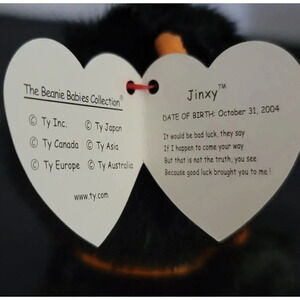 The Beanie Babies Collection®
© Ty Inc. © Ty Japan
© Ty Canada © Ty Asia
© Ty Europe © Ty Australia
www.ty.com
Jinxy™
DATE OF BIRTH: October 31, 2004
It would be bad luck, they say
If I happen to come your way
But that is not the truth, you see
Because good luck brought you to me !